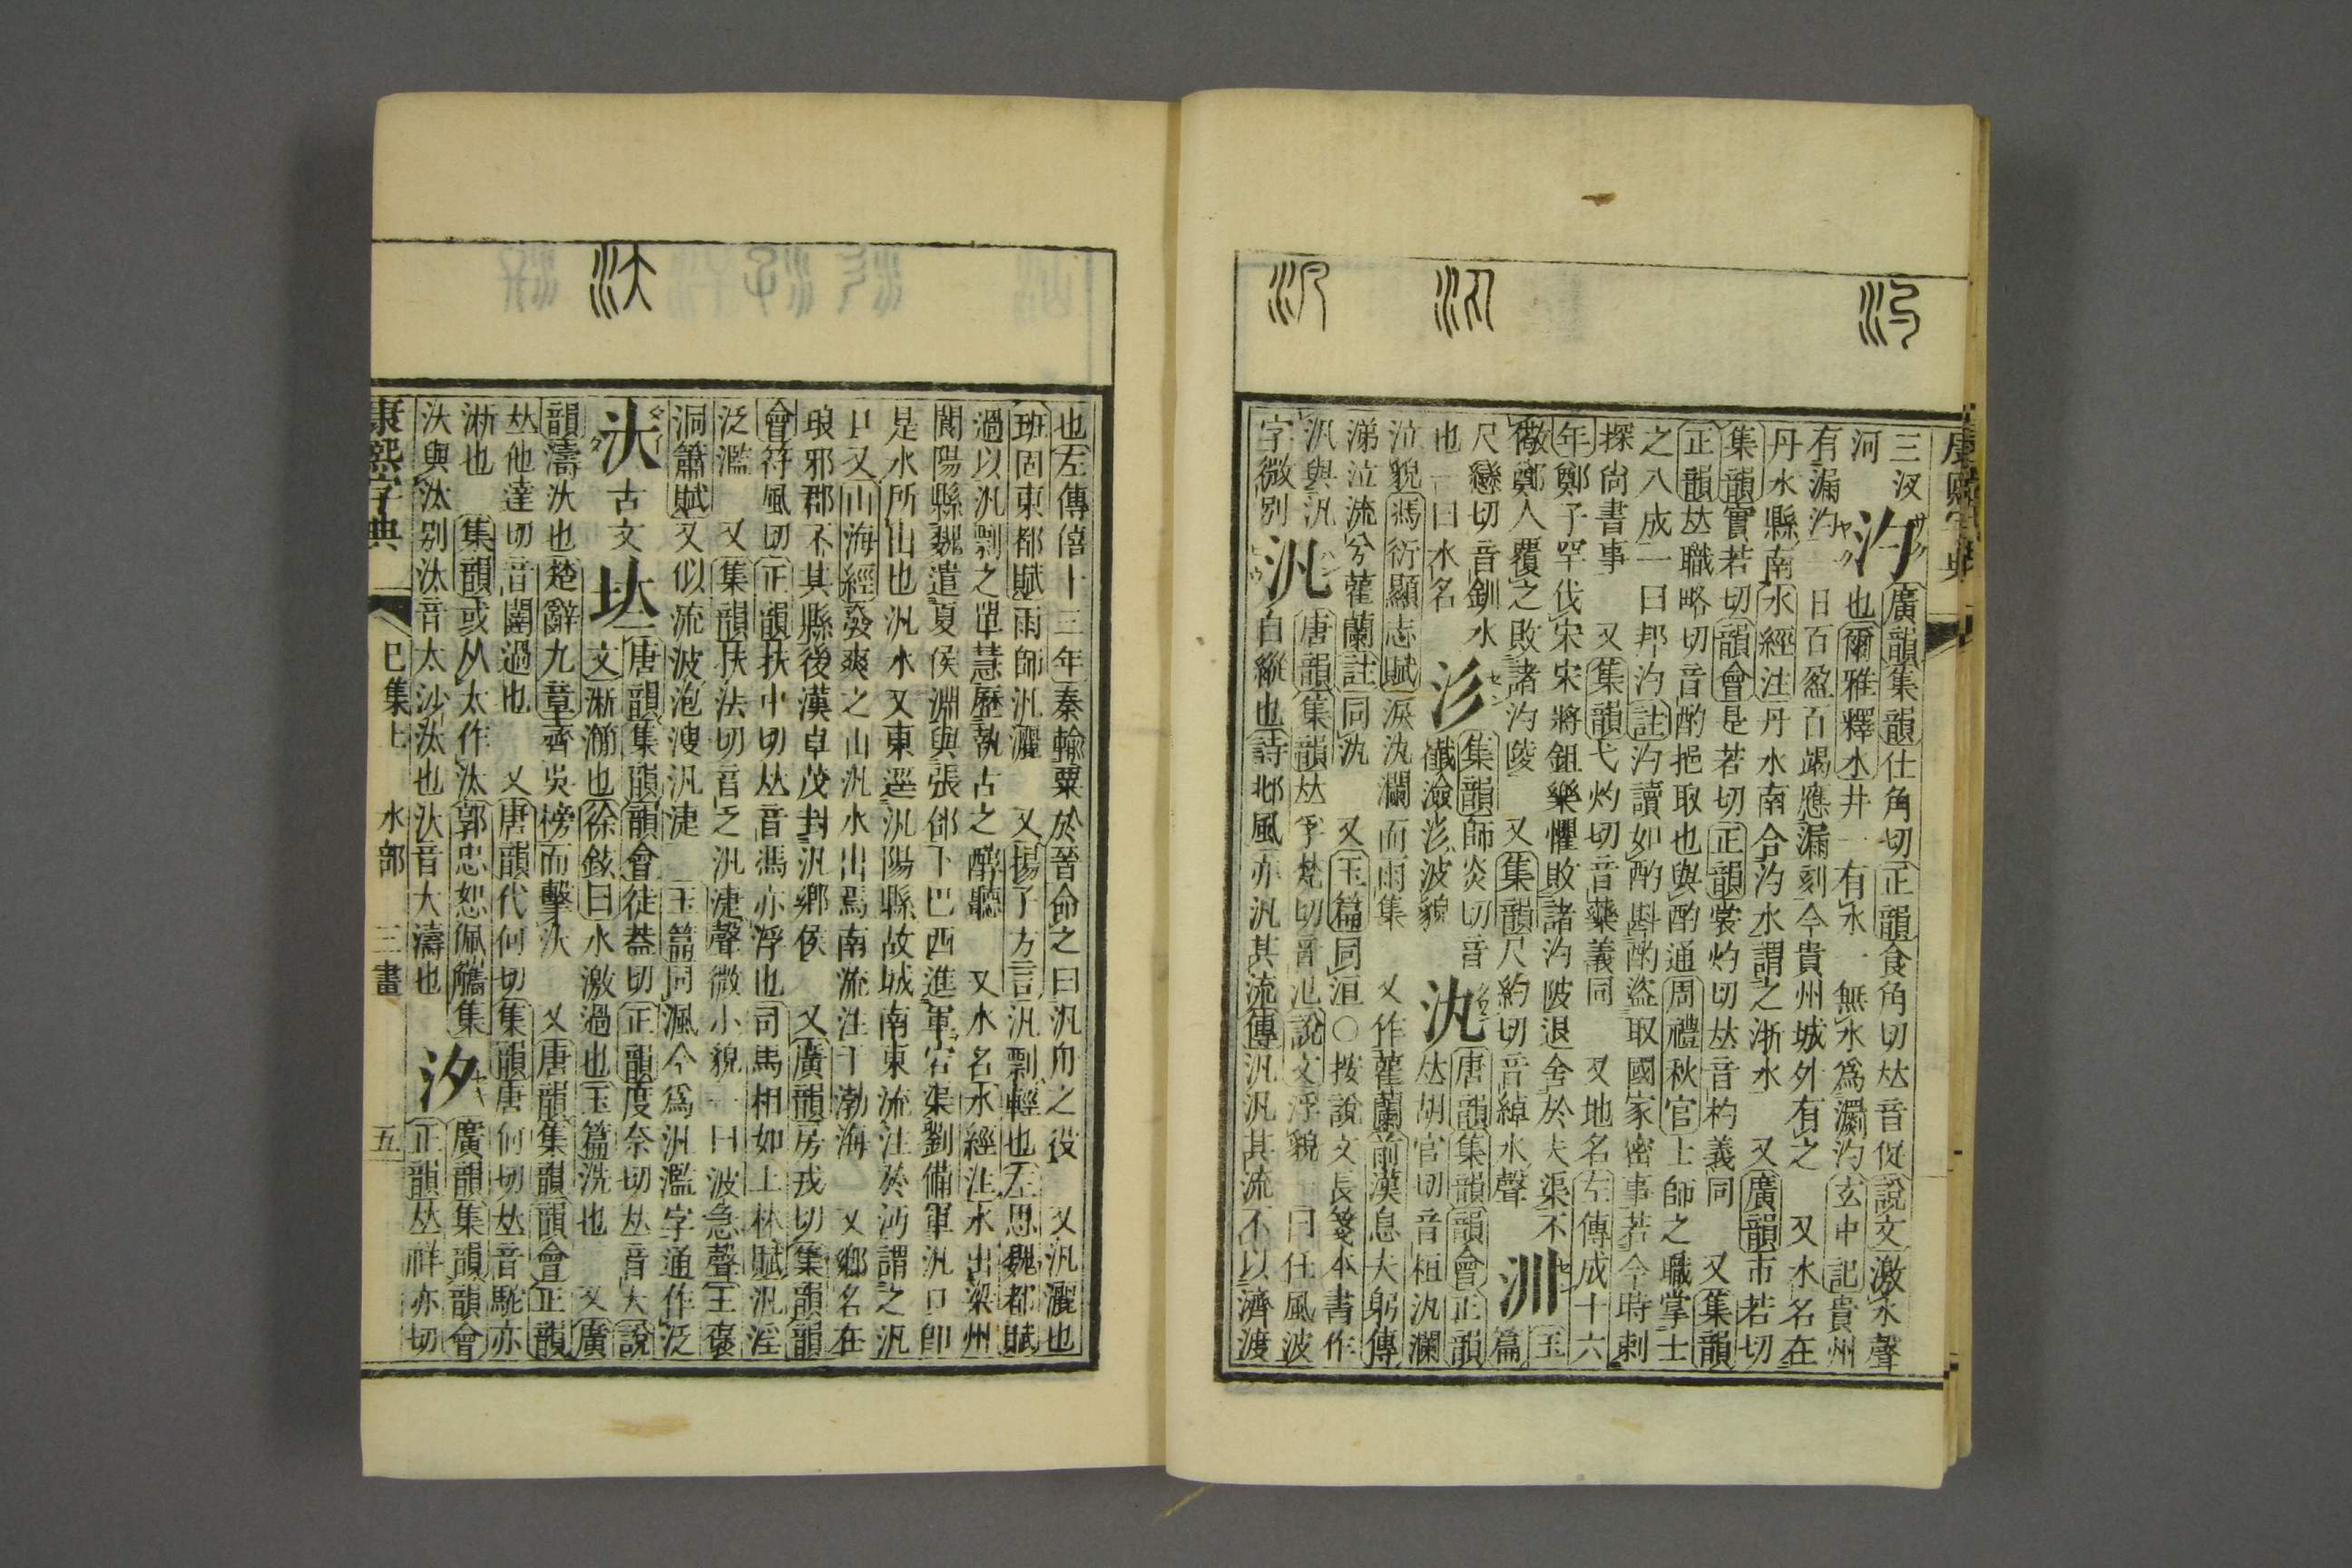 三汊汋廣韻集韻仕角切正韻食角切𠀤音浞說文激水聲
河也爾雅釋水井一有水一無水爲瀱汋玄中記貴州
有漏汋一日百盈百竭應漏刻今貴州城外有之 又水名在
丹水縣南水經注丹水南合汋水謂之淅水 又廣韻市若切
集韻實若切韻會是若切正韻裳灼切𠀤音杓義同 又集韻
正韻𠀤職略切音酌挹取也與酌通周禮秋官士師之職掌士
之八成一曰邦汋註汋讀如酌斟酌盜取國家密事若今時刺
探尙書事 又集韻弋灼切音藥義同 又地名左傳成十六
年鄭子罕伐宋宋將鉏樂懼敗諸汋陂退舍於夫渠不
儆鄭人覆之敗諸汋陵 又集韻尺約切音綽水聲 汌玉篇
尺戀切音釧水
也一曰水名
㳄集韻師炎切音
襳澰㳄波貌
汍唐韻集韻韻會正韻
𠀤胡官切音桓汍瀾
泣貌馮衍顯志賦淚汍瀾而雨集 又作雚蘭前漢息夫躬傳
涕泣流兮雚蘭註同汍 又玉篇同洹〇按說文長箋本書作
汎與汎
字微別
汎唐韻集韻𠀤孚梵切音氾說文浮貌一曰任風波
自縱也詩邶風亦汎其流傳汎汎其流不以濟渡
也左傳僖十三年秦輸粟於晉命之曰汎舟之役 又汎灑也
班固東都賦雨師汎灑 又揚子方言汎剽輕也左思魏都賦
過以汎剽之單慧歷執古之醉聽 又水名水經注水出梁州
閬陽縣魏遣夏侯淵與張郃下巴西進軍宕渠劉備軍汎口卽
是水所出也汎水又東逕汎陽縣故城南東流注於沔謂之汎
口又山海經發爽之山汎水出焉南流注于渤海 又鄉名在
琅邪郡不其縣後漢卓茂封汎鄉侯 又廣韻房戎切集韻韻
會符風切正韻扶中切𠀤音馮亦浮也司馬相如上林賦汎淫
泛濫 又集韻扶法切音乏汎㴙聲微小貌一曰波急聲王襃
洞簫賦又似流波泡溲汎㴙 玉篇同渢今爲汎濫字通作泛
汏古文𡊁唐韻集韻韻會徒蓋切正韻度奈切𠀤音大說
文淅𤂱也徐鉉曰水激過也玉篇洗也 又廣
韻濤汏也楚辭九章齊吳榜而擊汏 又唐韻集韻韻會正韻
𠀤他達切音闥過也 又唐韻代何切集韻唐何切𠀤音駝亦
淅也 集韻或从太作汰郭忠恕佩觿集
汏與汰別汰音太沙汰也汏音大濤也
汐廣韻集韻韻會
正韻𠀤祥亦切
康熙字典 巳集上 水部 三畫 五